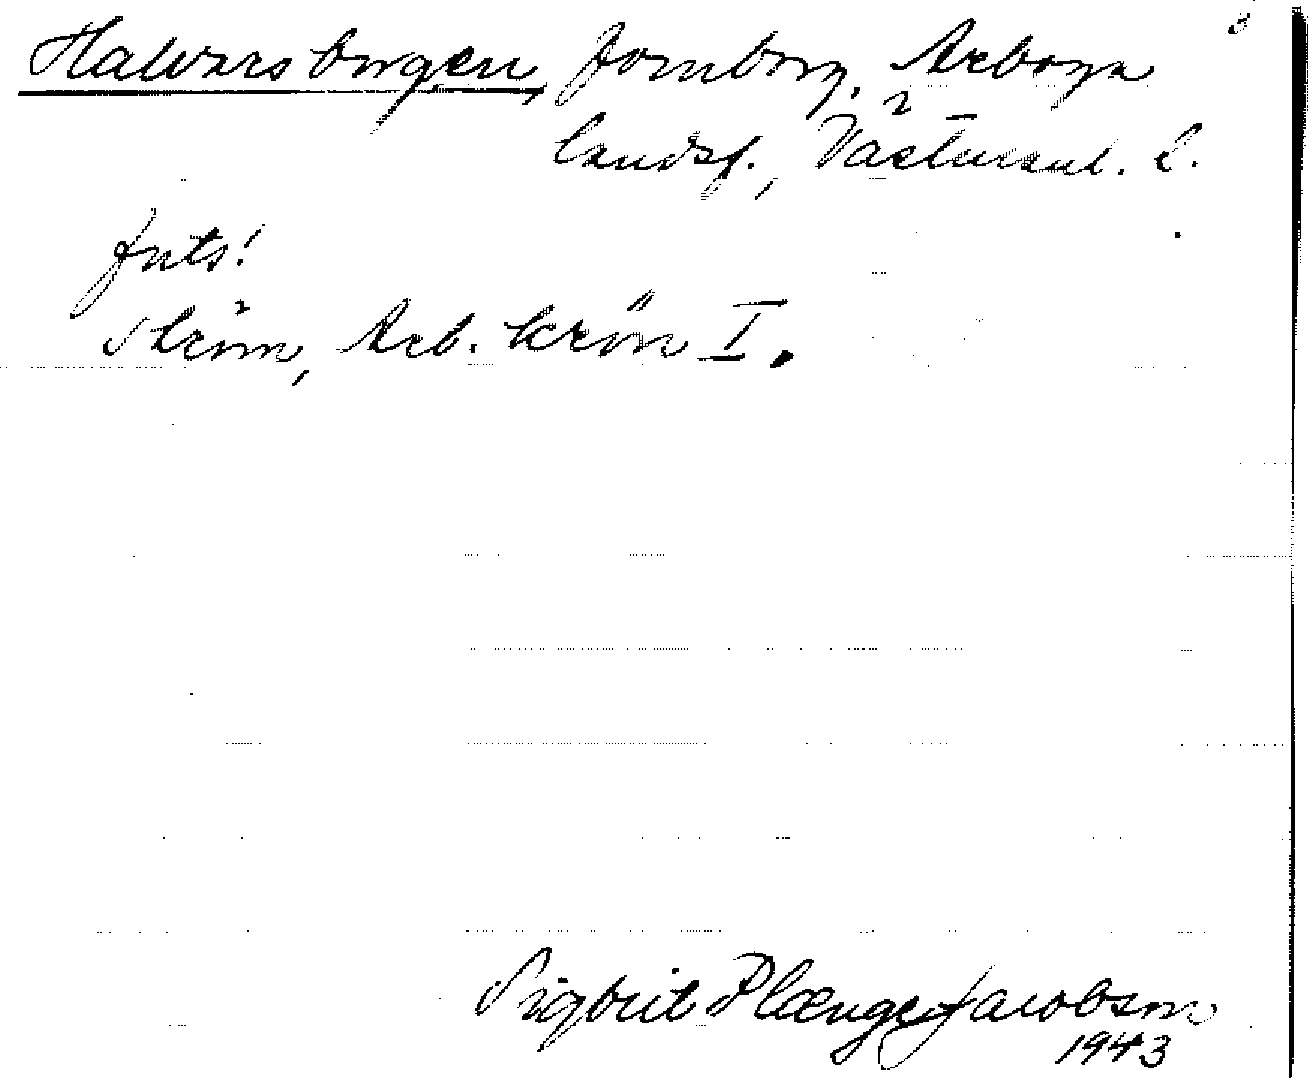 Halvarsborgen, fornborg, Arboga
landsf., Västmanl. l.
fnts!
Ström, Arb. krön I.
Sigbrit Plænge Jacobson
1943